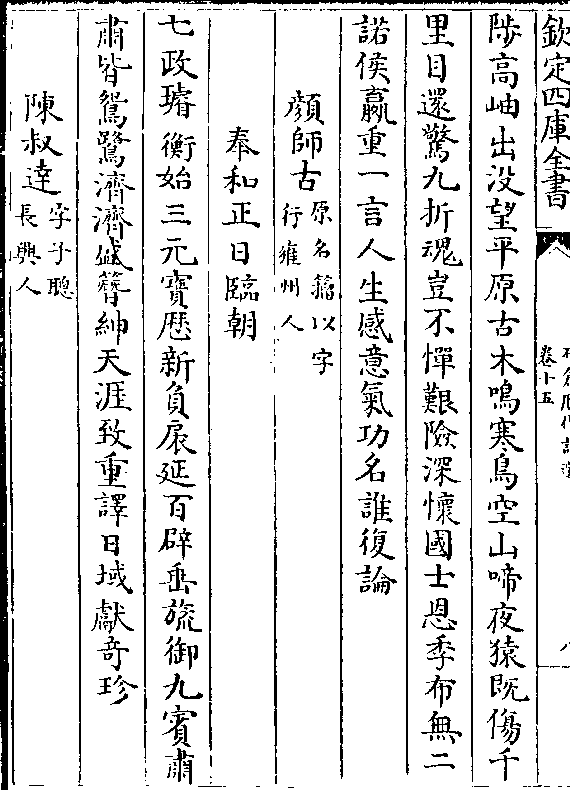 欽定四庫全書
卷十五
八
陟高岫出沒望平原古木鳴寒鳥空山啼夜猿既傷千
里目還驚九折魂豈不憚艱險深懷國士恩季布無二
諾侯嬴重一言人生感意氣功名誰復論
顔師古原名籀以字
行雍州人
奉和正日臨朝
七政璿衡始三元寶歴新負扆延百辟垂旒御九賓肅
肅皆鴛鷺濟濟盛簪紳天涯致重譯日域獻奇珍
陳叔達字子聰
長興人